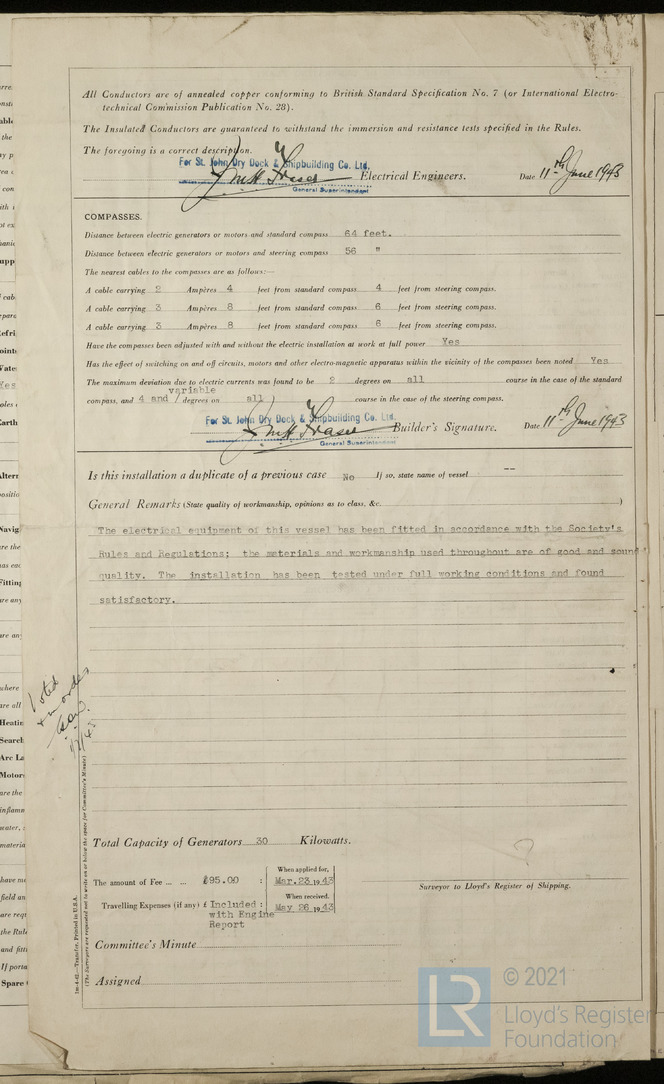 All Conductors are of annealed copper conforming to British Standard Specification No. 7 (or International Electro-
technical Commission Publication No. 28).
The Insulated Conductors are guaranteed to withstand the immersion and resistance tests specified in the Rules.
The foregoing is a correct description.
For St. John Dry Dock & Shipbuilding Co. Ltd.
Fraser Electrical Engineers. Date 11th June 1943
General Superintendent
COMPASSES.
Distance between electric generators or motors and standard compass 64 feet.
Distance between electric generators or motors and steering compass 56 "
The nearest cables to the compasses are as follows:—
A cable carrying 2 Ampères 4 feet from standard compass 4 feet from steering compass.
A cable carrying 3 Ampères 8 feet from standard compass 6 feet from steering compass.
A cable carrying 3 Ampères 8 feet from standard compass 6 feet from steering compass.
Have the compasses been adjusted with and without the electric installation at work at full power Yes
Has the effect of switching on and off circuits, motors and other electro-magnetic apparatus within the vicinity of the compasses been noted Yes
The maximum deviation due to electric currents was found to be 2 degrees on all course in the case of the standard
variable
compass, and 4 and / degrees on all course in the case of the steering compass.
For St. John Dry Dock & Shipbuilding Co. Ltd.
Fraser Builder's Signature. Date 11th June 1943
General Superintendent
Is this installation a duplicate of a previous case No If so, state name of vessel --
General Remarks (State quality of workmanship, opinions as to class, &c. )
The electrical equipment of this vessel has been fitted in accordance with the Society's
Rules and Regulations; the materials and workmanship used throughout are of good and sound
quality. The installation has been tested under full working conditions and found
satisfactory.
Noted
Total Capacity of Generators 30 Kilowatts.
The amount of Fee ... ... £95.00 : When applied for, Mar. 23 1943
Travelling Expenses (if any) £ Included : When received, May 26 1943
with Engine
Report
Surveyor to Lloyd's Register of Shipping.
Committee's Minute
Assigned
1m-4-42.—Transfer. Printed in U.S.A.
(The Surveyors are requested not to write on or below the space for Committee's Minute.)
LR © 2021
Lloyd's Register
Foundation